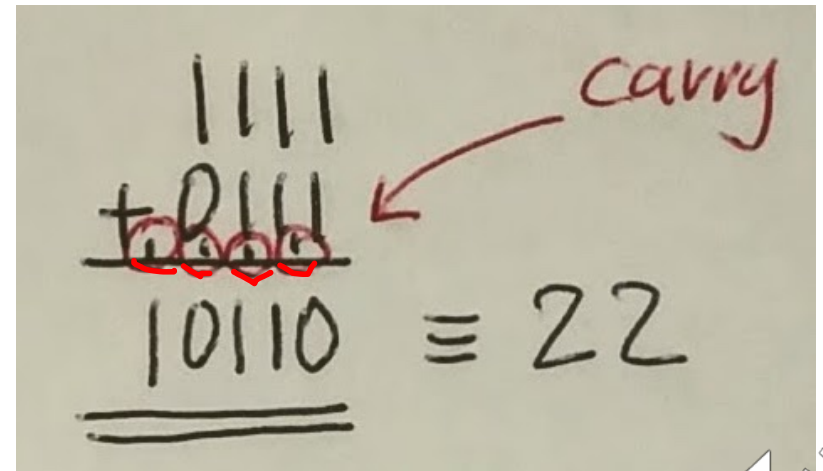 1111
carry
+ 0111
1 1 1 1
10110 ≡ 22